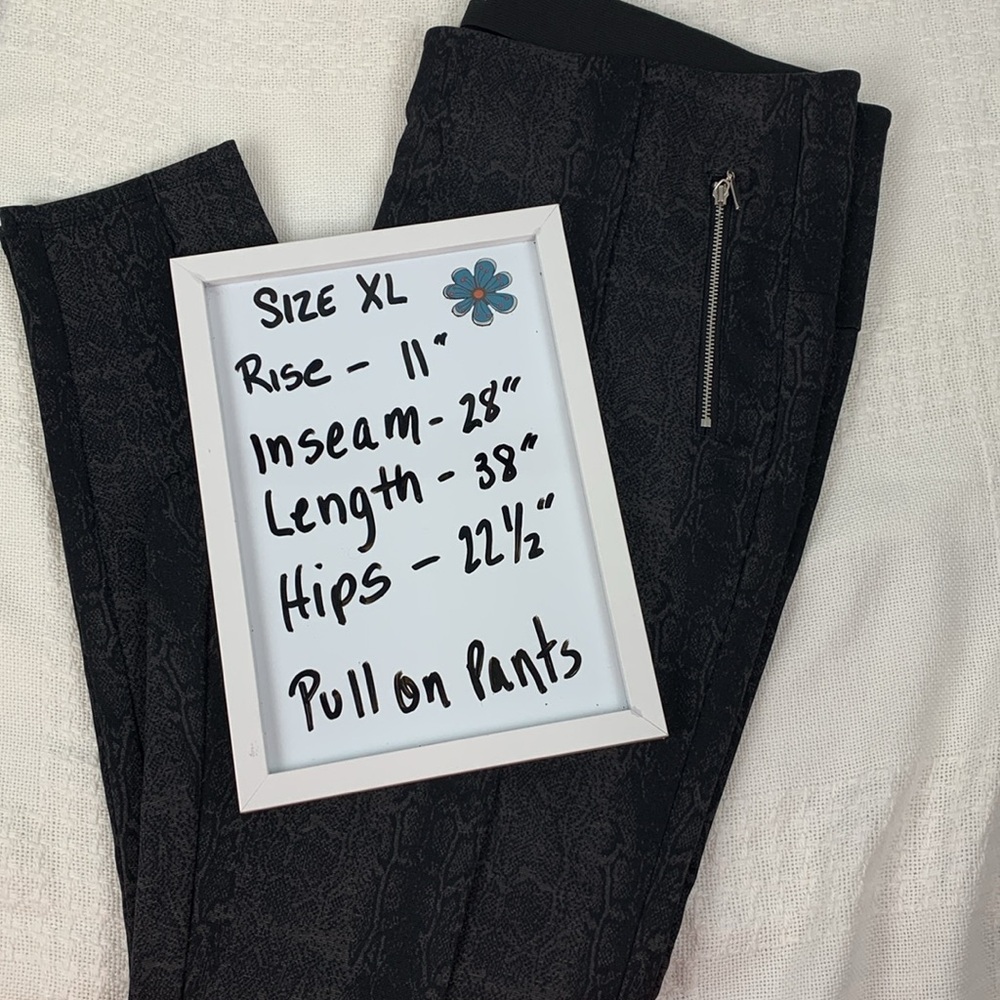 SIZE XL
Rise - 11"
Inseam - 28"
Length - 38"
Hips - 22 1/2"
Pull on Pants